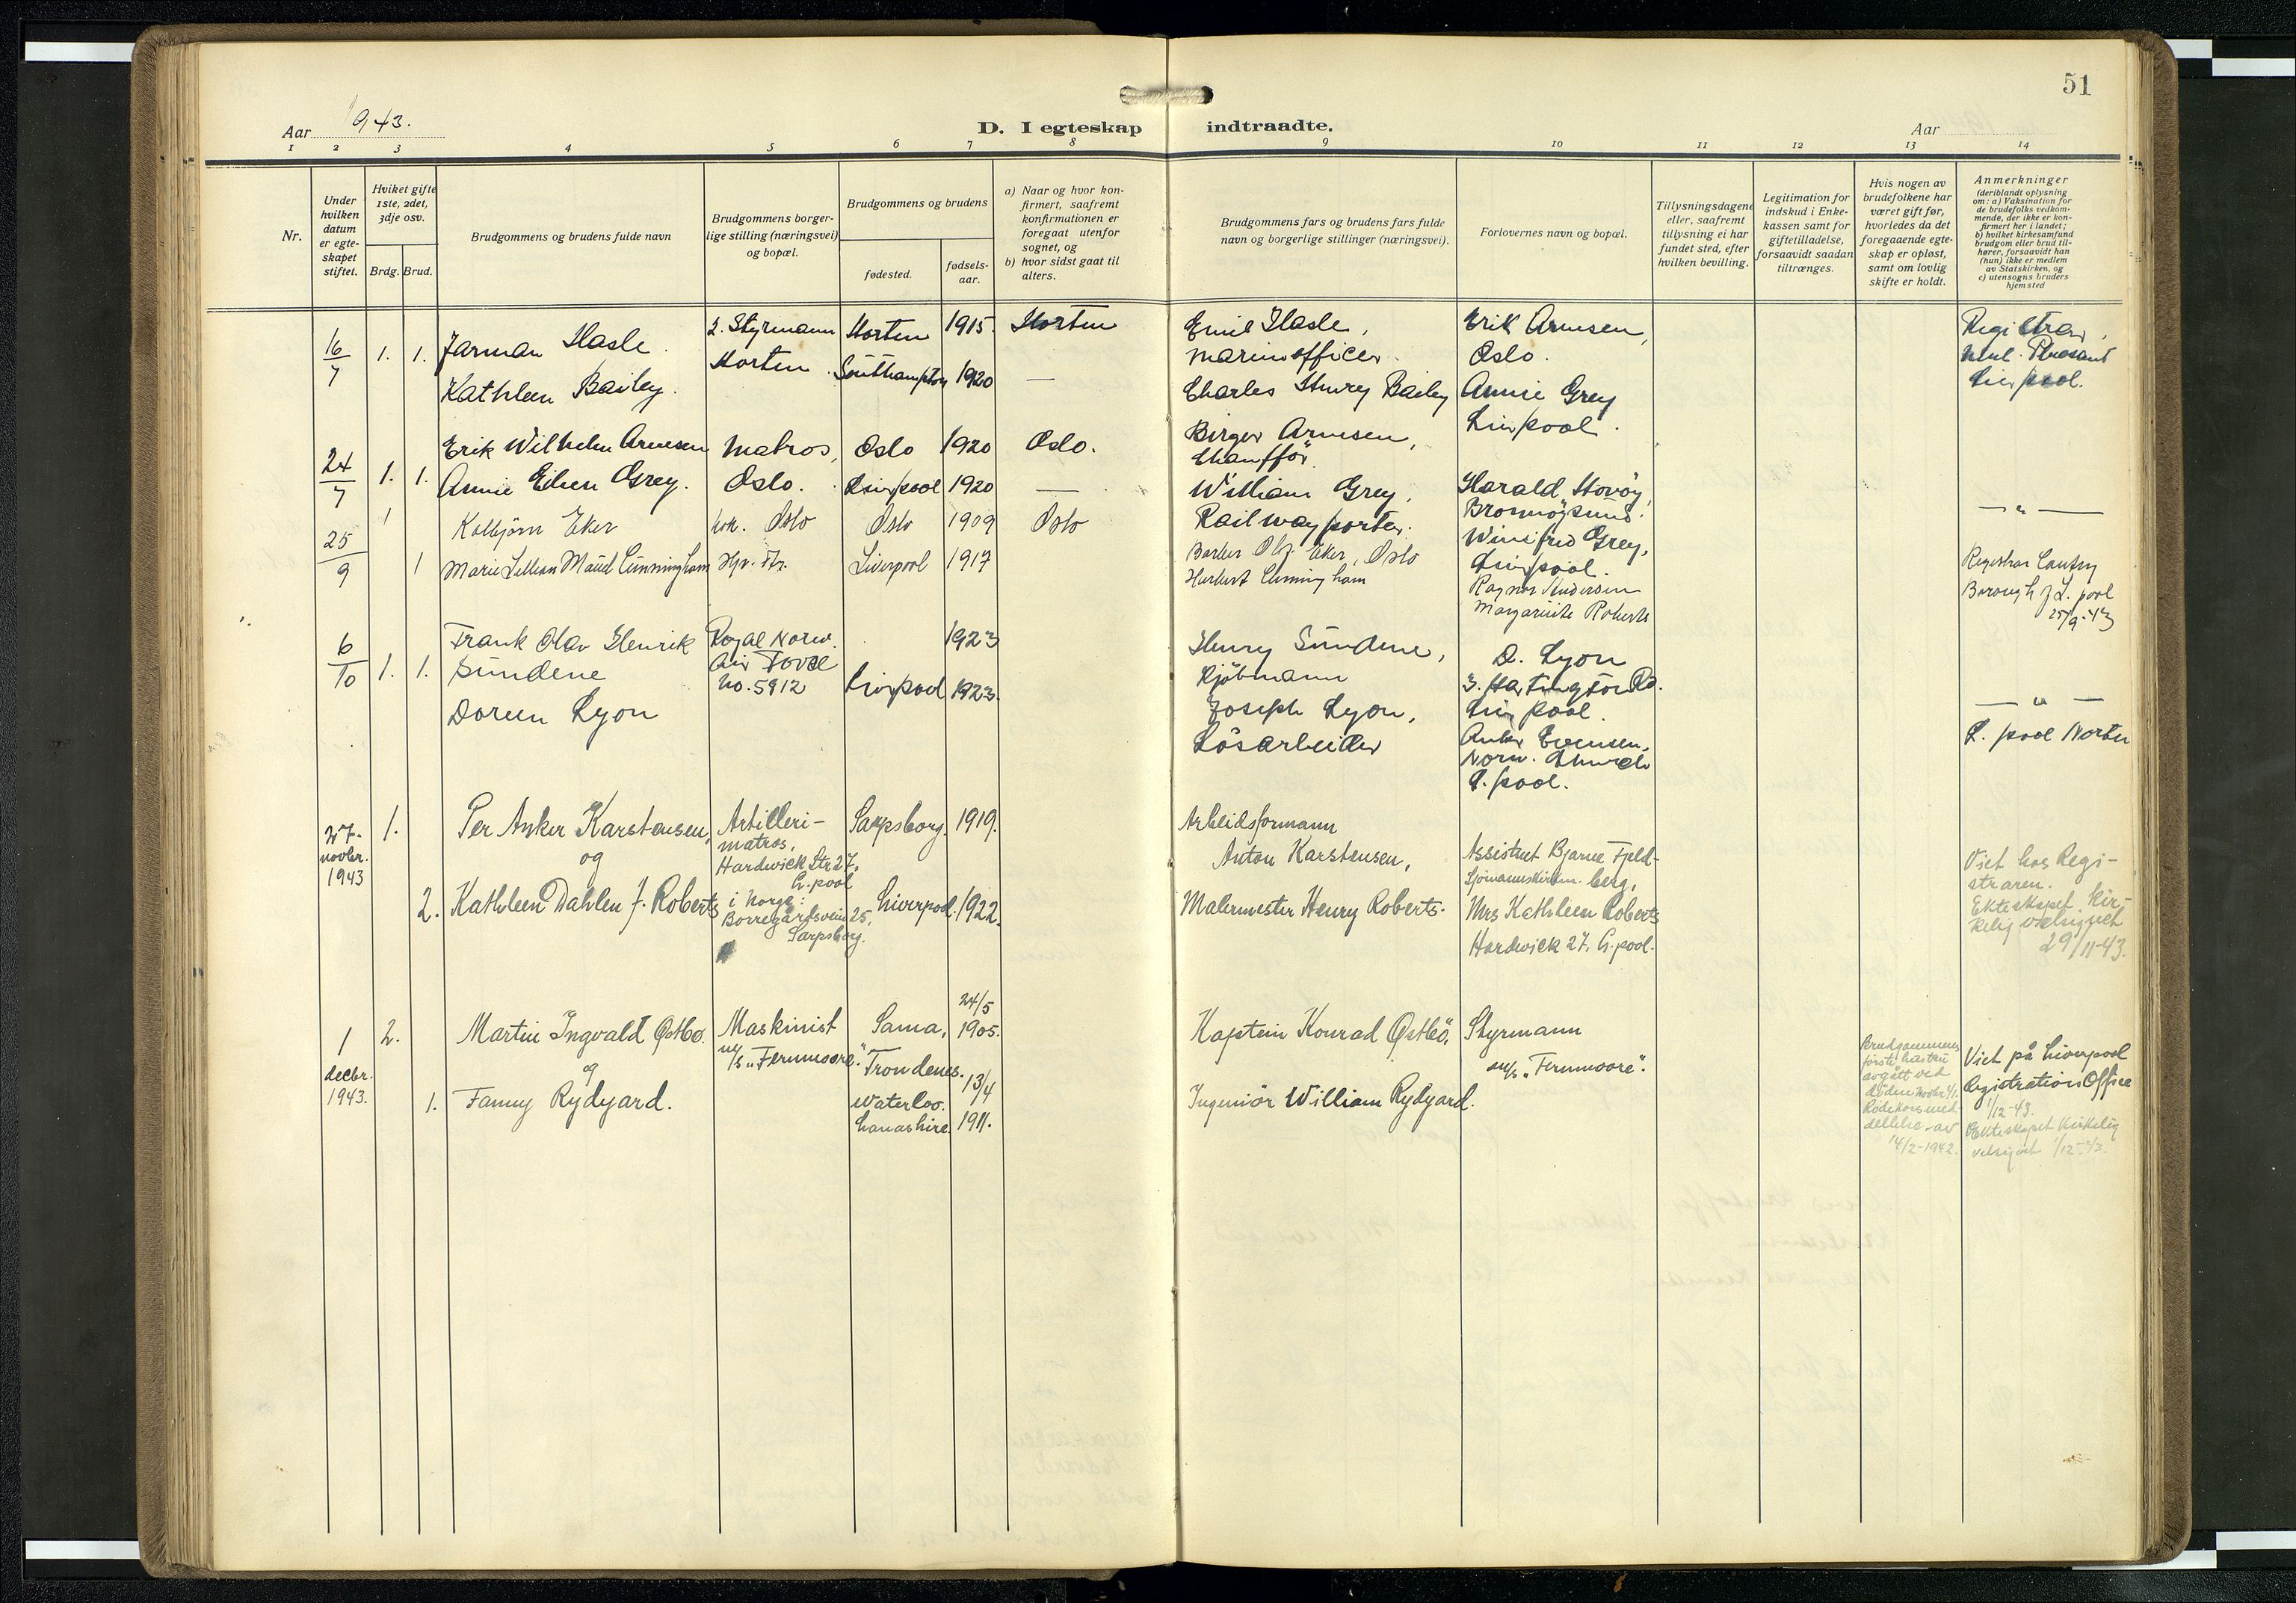 51
Aar 1943.
D. I egteskap indtraadte.
Aar
1 2 3 4 5 6 7 8 9 10 11 12 13 14
Nr.
Under hvilken datum er egte-skapet stiftet.
Hviket gifte 1ste, 2det, 3dje osv.
Brdg. Brud.
Brudgommens og brudens fulde navn
Brudgommens borger-lige stilling (næringsvei) og bopæl.
Brudgommens og brudens
fødested.
fødsels-aar.
a) Naar og hvor kon-firmert, saafremt konfirmationen er foregaat utenfor sognet, og
b) hvor sidst gaat til alters.
Brudgommens fars og brudens fars fulde navn og borgerlige stillinger (næringsvei).
Forlovernes navn og bopæl.
Tillysningsdagene eller, saafremt tillysning ei har fundet sted, efter hvilken bevilling.
Legitimation for indskud i Enke-kassen samt for giftetilladelse, forsaavidt saadan tiltrænges.
Hvis nogen av brudefolkene har været gift før, hvorledes da det foregaaende egte-skap er opløst, samt om lovlig skifte er holdt.
Anmerkninger
(deriblandt oplysning om: a) Vaksination for de brudefolks vedkom-mende, der ikke er kon-firmert her i landet; b) hvilket kirkesamfund brudgom eller brud til-hører, forsaavidt han (hun) ikke er medlem av Statskirken, og c) utensogns bruders hjemsted
16/7 1. 1. Jarman Hasle.
Kathleen Bailey.
2. Styrmann
Horten
Horten 1915.
Southampton 1920
Horten
—
Emil Hasle,
marineofficer.
Charles Henry Bailey
Erik Arnesen,
Oslo.
Annie Grey
Liverpool.
Registrar,
Mnt. Pleasant
Liverpool.
24/7 1. 1. Erik Wilhelm Arnesen
Annie Eileen Grey.
Matros,
Oslo.
Oslo 1920
Liverpool 1920
Oslo.
—
Birger Arnesen,
Chaufför.
William Grey,
Railwayporter.
Harald Hovöy,
Bronnöysund.
Winifred Grey,
Liverpool.
— " —
25/9 1 1 Kolbjörn Eker
Marie Lillian Maud Cunningham
kok. Oslo
Oslo 1909
Liverpool 1917
Oslo
Barber Olf Eker, Oslo
Herbert Cunningham
Ragnar Andersen
Margarite Roberts
Registrar
Borough of L.pool
25/9-43
6/10 1. 1. Frank Olav Henrik
Sundene
Doreen Lyon
Royal Norw.
Air Force
No. 5912
1923
Liverpool 1923.
Henry Sundene,
Kjöbmann
Joseph Lyon,
Lösarbeider
D. Lyon
3. Hartington Rd.
Liverpool.
Anker Evensen,
Norw. Church
L.pool.
— " —
L.pool North
27. novbr. 1943
1.
Per Anker Karstensen,
og
2. Kathleen Dahlen f. Roberts
Artilleri-
matros,
Hardwick Str 27,
L.pool
i Norge:
Borregårdsveien 25,
Sarpsborg.
Sarpsborg. 1919.
Liverpool. 1922.
Arbeidsformann
Anton Karstensen,
Malermester Henry Roberts.
Assistent Bjarne Fjeld-
Sjömannskirken. berg,
Mrs Kathleen Roberts
Hardwick 27. L.pool.
Viet hos Regi-
straren.
Ekteskapet kir-
kelig velsignet
29/11-43.
1 decbr. 1943.
2.
Martin Ingvald Østbö.
og
1. Fanny Rydyard.
Maskinist
m/s "Fernmoore".
Sama,
Trondenes.
Waterloo.
Lanashire.
24/5
1905.
13/4
1911.
Kaptein Konrad Østbö.
Ingeniör William Rydyard.
Styrmann
m/s "Fernmoore".
Brudgommens
förste hustru
avgått ved
döden Novbr 41.
Rödekorsmed-
dellelse av
14/2-1942.
Viet på Liverpool
Registration Office
1/12-43.
Ekteskapet kirkelig
velsignet 1/12-43.